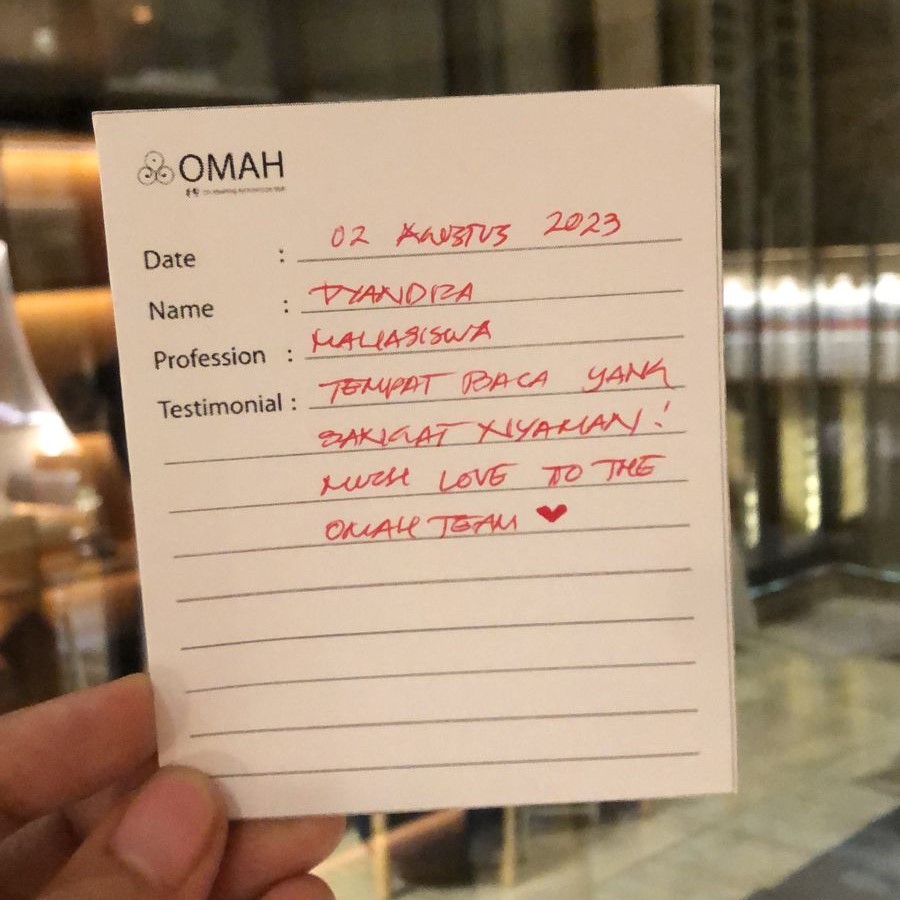 OMAH
Date : 02 AGUSTUS 2023
Name : DYANDRA
Profession : MAHASISWA
Testimonial : TEMPAT BACA YANG
SANGAT NYAMAN!
MUCH LOVE TO THE
OMAH TEAM ♥